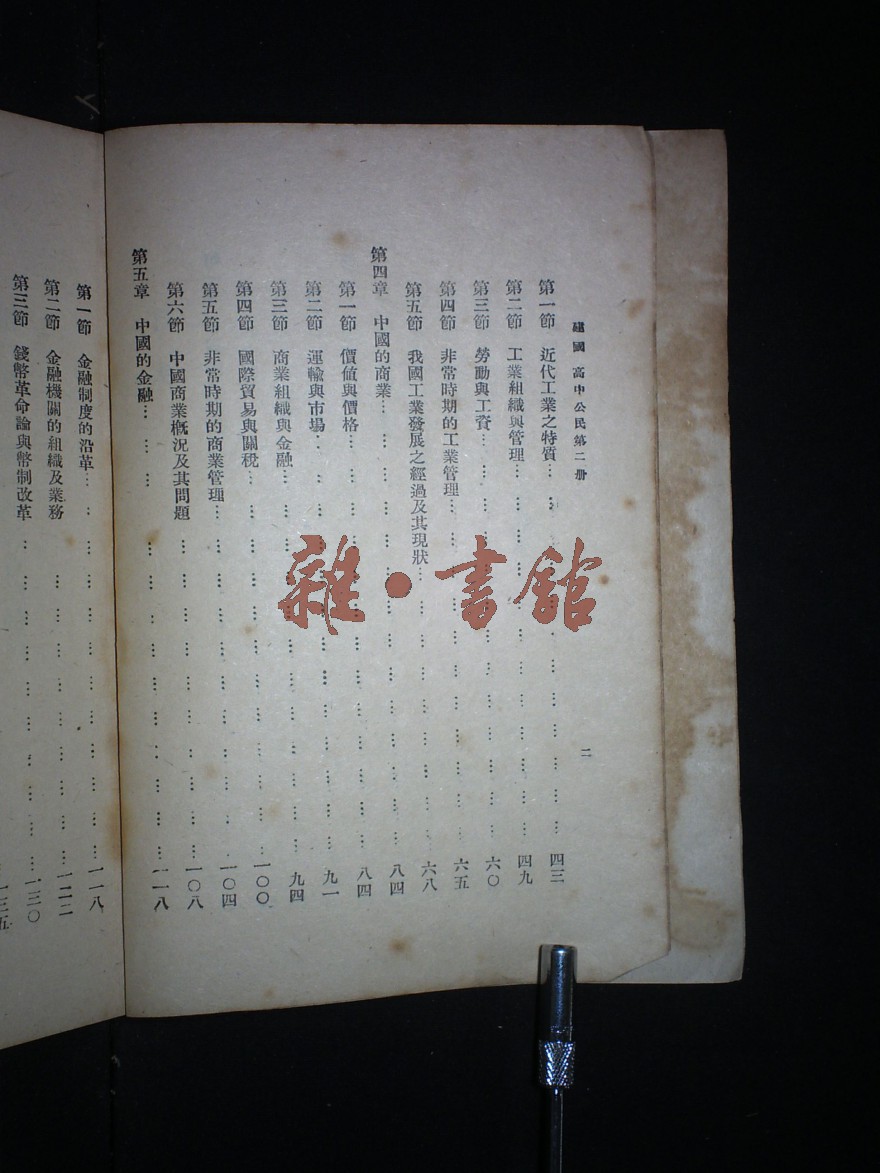 建國 高中公民第二册
二
第一節 近代工業之特質 四三
第二節 工業組織與管理 四九
第三節 勞動與工資 六〇
第四節 非常時期的工業管理 六五
第五節 我國工業發展之經過及其現狀 六八
第四章 中國的商業 八四
第一節 價值與價格 八四
第二節 運輸與市場 九一
第三節 商業組織與金融 九四
第四節 國際貿易與關稅 一〇〇
第五節 非常時期的商業管理 一〇四
第六節 中國商業概況及其問題 一〇八
第五章 中國的金融 一一八
第一節 金融制度的沿革 一一八
第二節 金融機關的組織及業務 一二二
第三節 錢幣革命論與幣制改革 一三〇
一三五
雜·書館